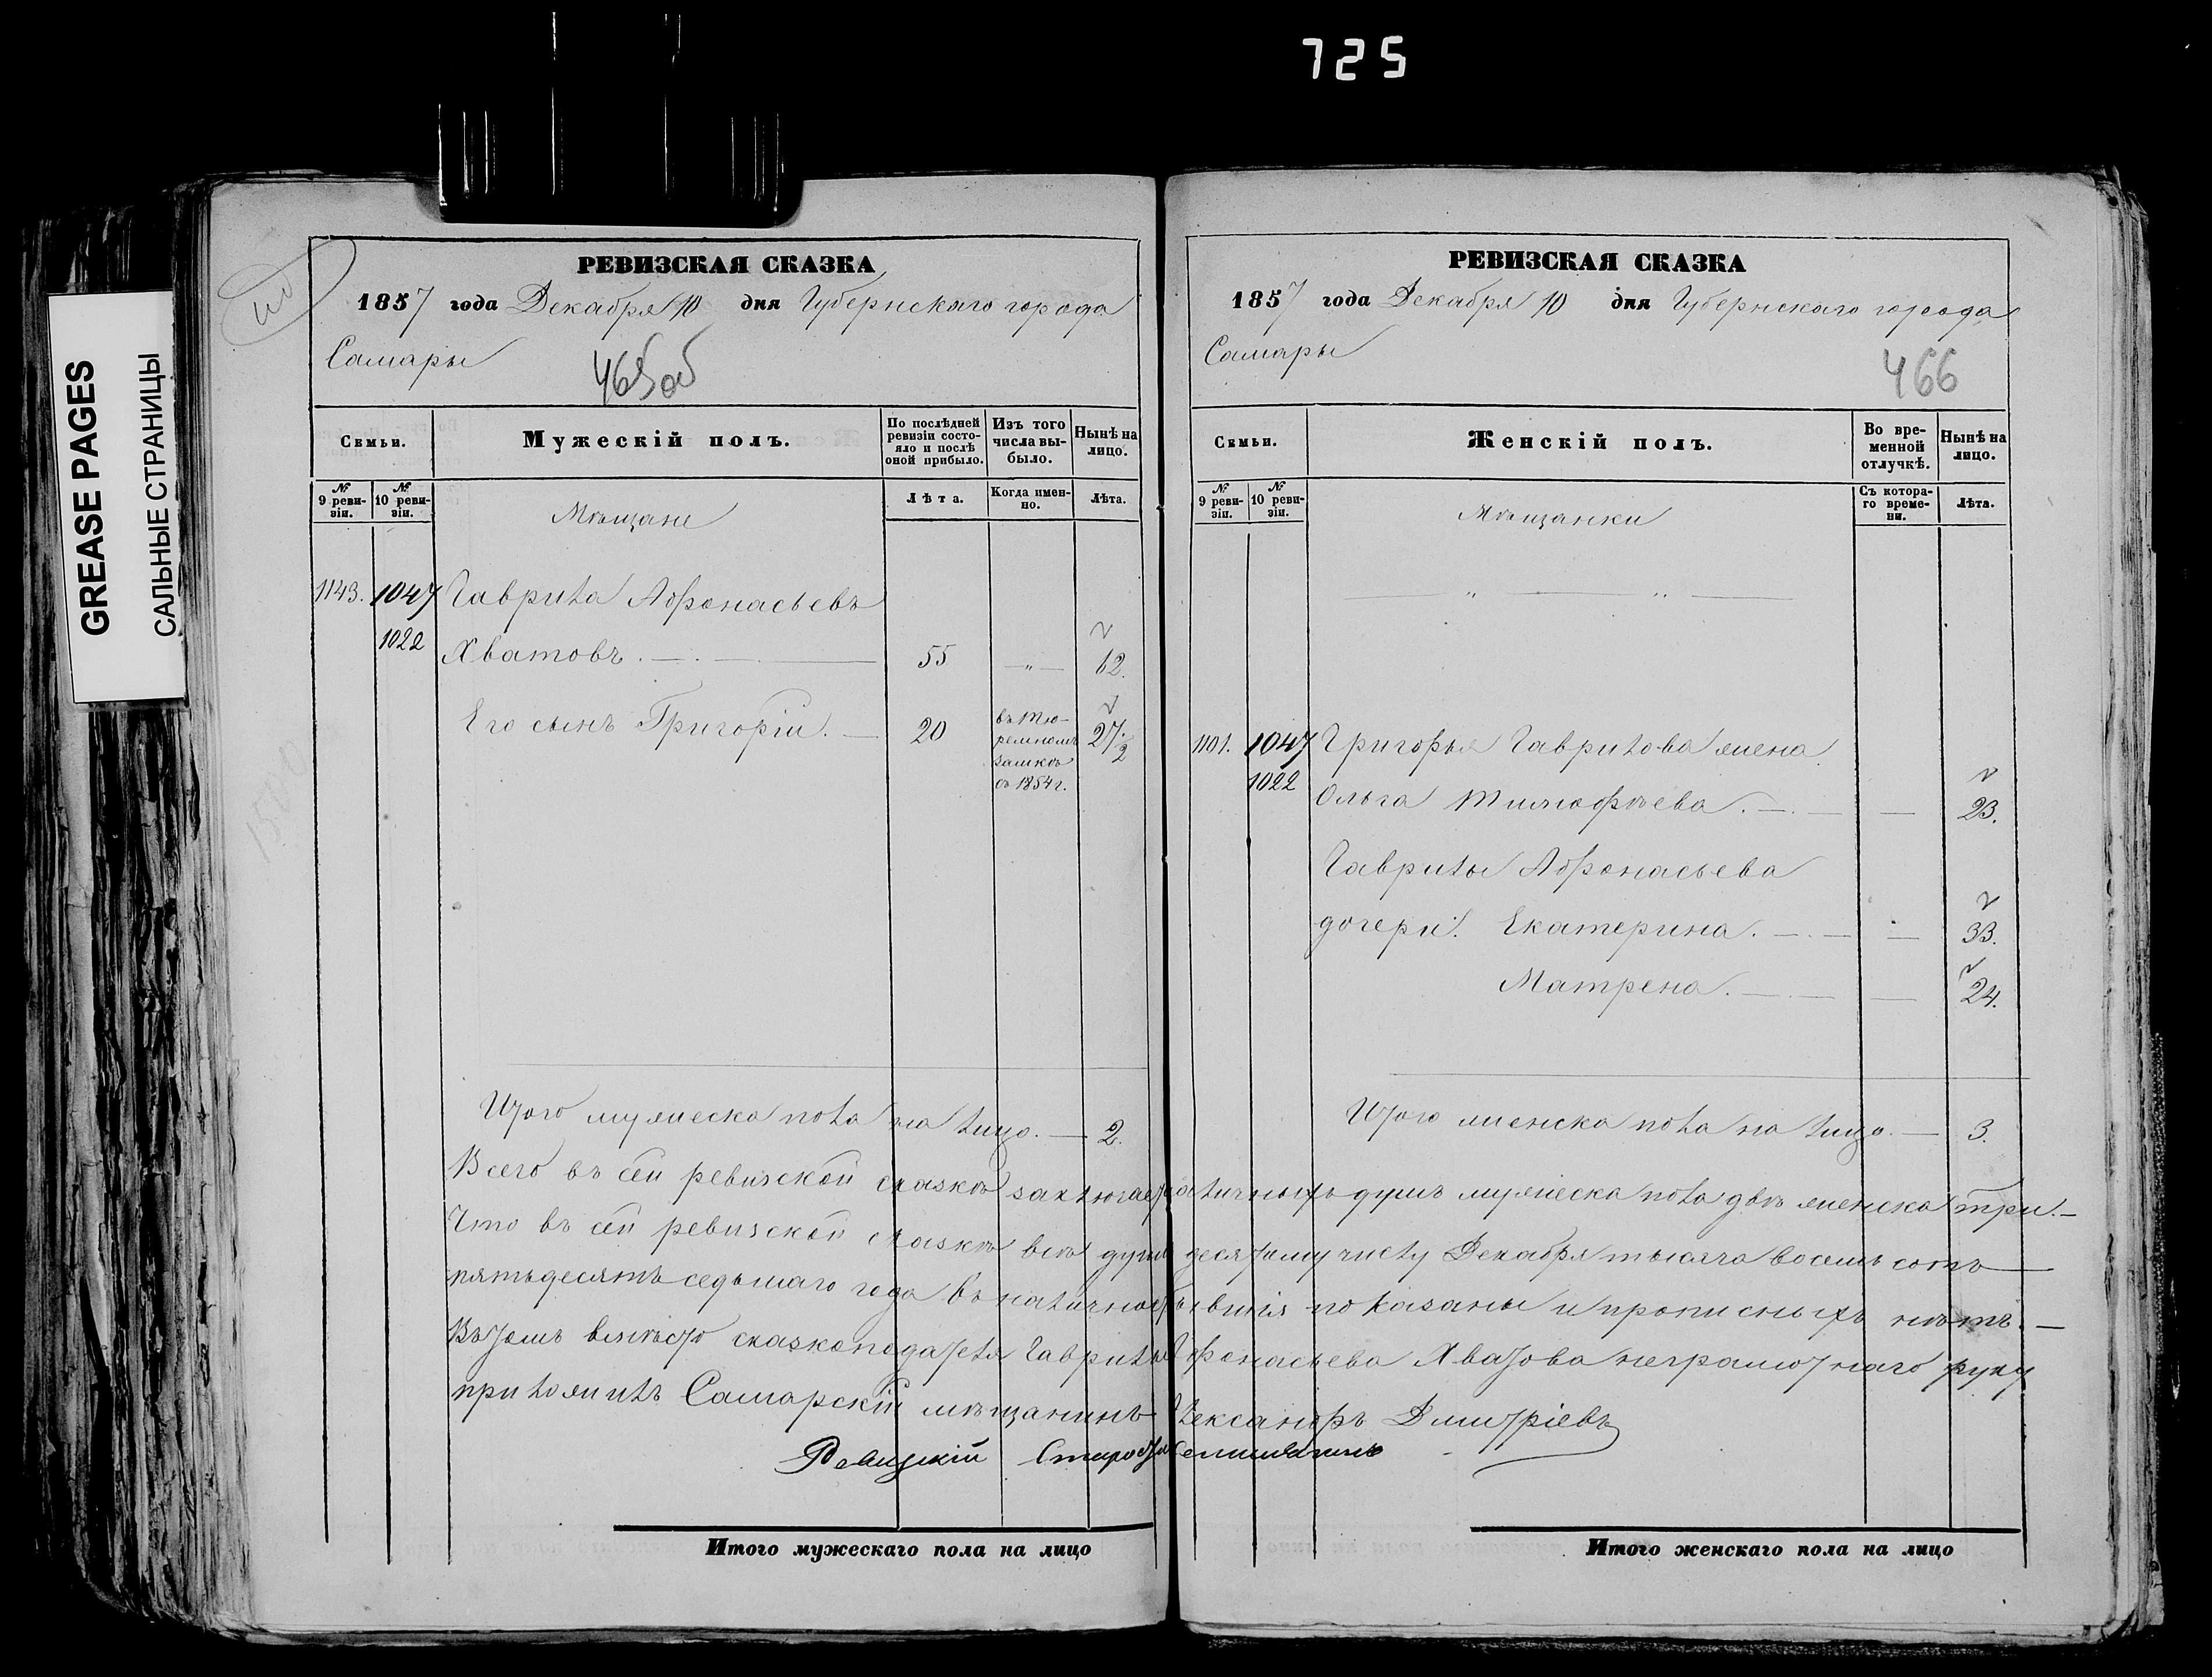 725
GREASE PAGES
САЛЬНЫЕ СТРАНИЦЫ
РЕВИЗСКАЯ СКАЗКА
1857 года Декабря 10 дня Губернскаго города
Самары
465об
Семьи.
Мужескій полъ.
По послѣдней ревизіи состояло и послѣ оной прибыло.
Изъ того числа выбыло.
Нынѣ на лицо.
№ 9 ревизіи.
№ 10 ревизіи.
Лѣта.
Когда именно.
Лѣта.
Мѣщане
1143. 1047 Гаврила Афонасьевъ
1022 Хватовъ. 55 — " — 62.
Его сынъ Григорій. 20 въ тюремномъ замкѣ съ 1854 г. 27. 2
Итого мужеска пола на лицо. — 2.
РЕВИЗСКАЯ СКАЗКА
1857 года Декабря 10 дня Губернскаго города
Самары
466
Семьи.
Женскій полъ.
Во временной отлучкѣ.
Нынѣ на лицо.
№ 9 ревизіи.
№ 10 ревизіи.
Съ котораго времени.
Лѣта.
Мѣщанки
— " — " —
1101. 1047 Григорья Гаврилова жена
1022 Ольга Тимофѣева. — — 23.
Гаврилы Афонасьева
дочери: Екатерина. — — 33.
Матрена. — — 24.
Итого женска пола на лицо. — 3.
Всего въ сей ревизской сказкѣ заключается наличныхъ душъ мужеска пола двѣ женска три. —
Что въ сей ревизской сказкѣ всѣ души десятому числу Декабря тысяча восемь сотъ —
пятьдесятъ седьмаго года въ наличности показаны и прописныхъ нѣтъ. —
Въ томъ вмѣсто сказкоподателя Гаврилы Афонасьева Хватова неграмотнаго руку
приложилъ Самарскій мѣщанинъ Александръ Дмитріевъ
Ревизскій Староста
Итого мужескаго пола на лицо
Итого женскаго пола на лицо